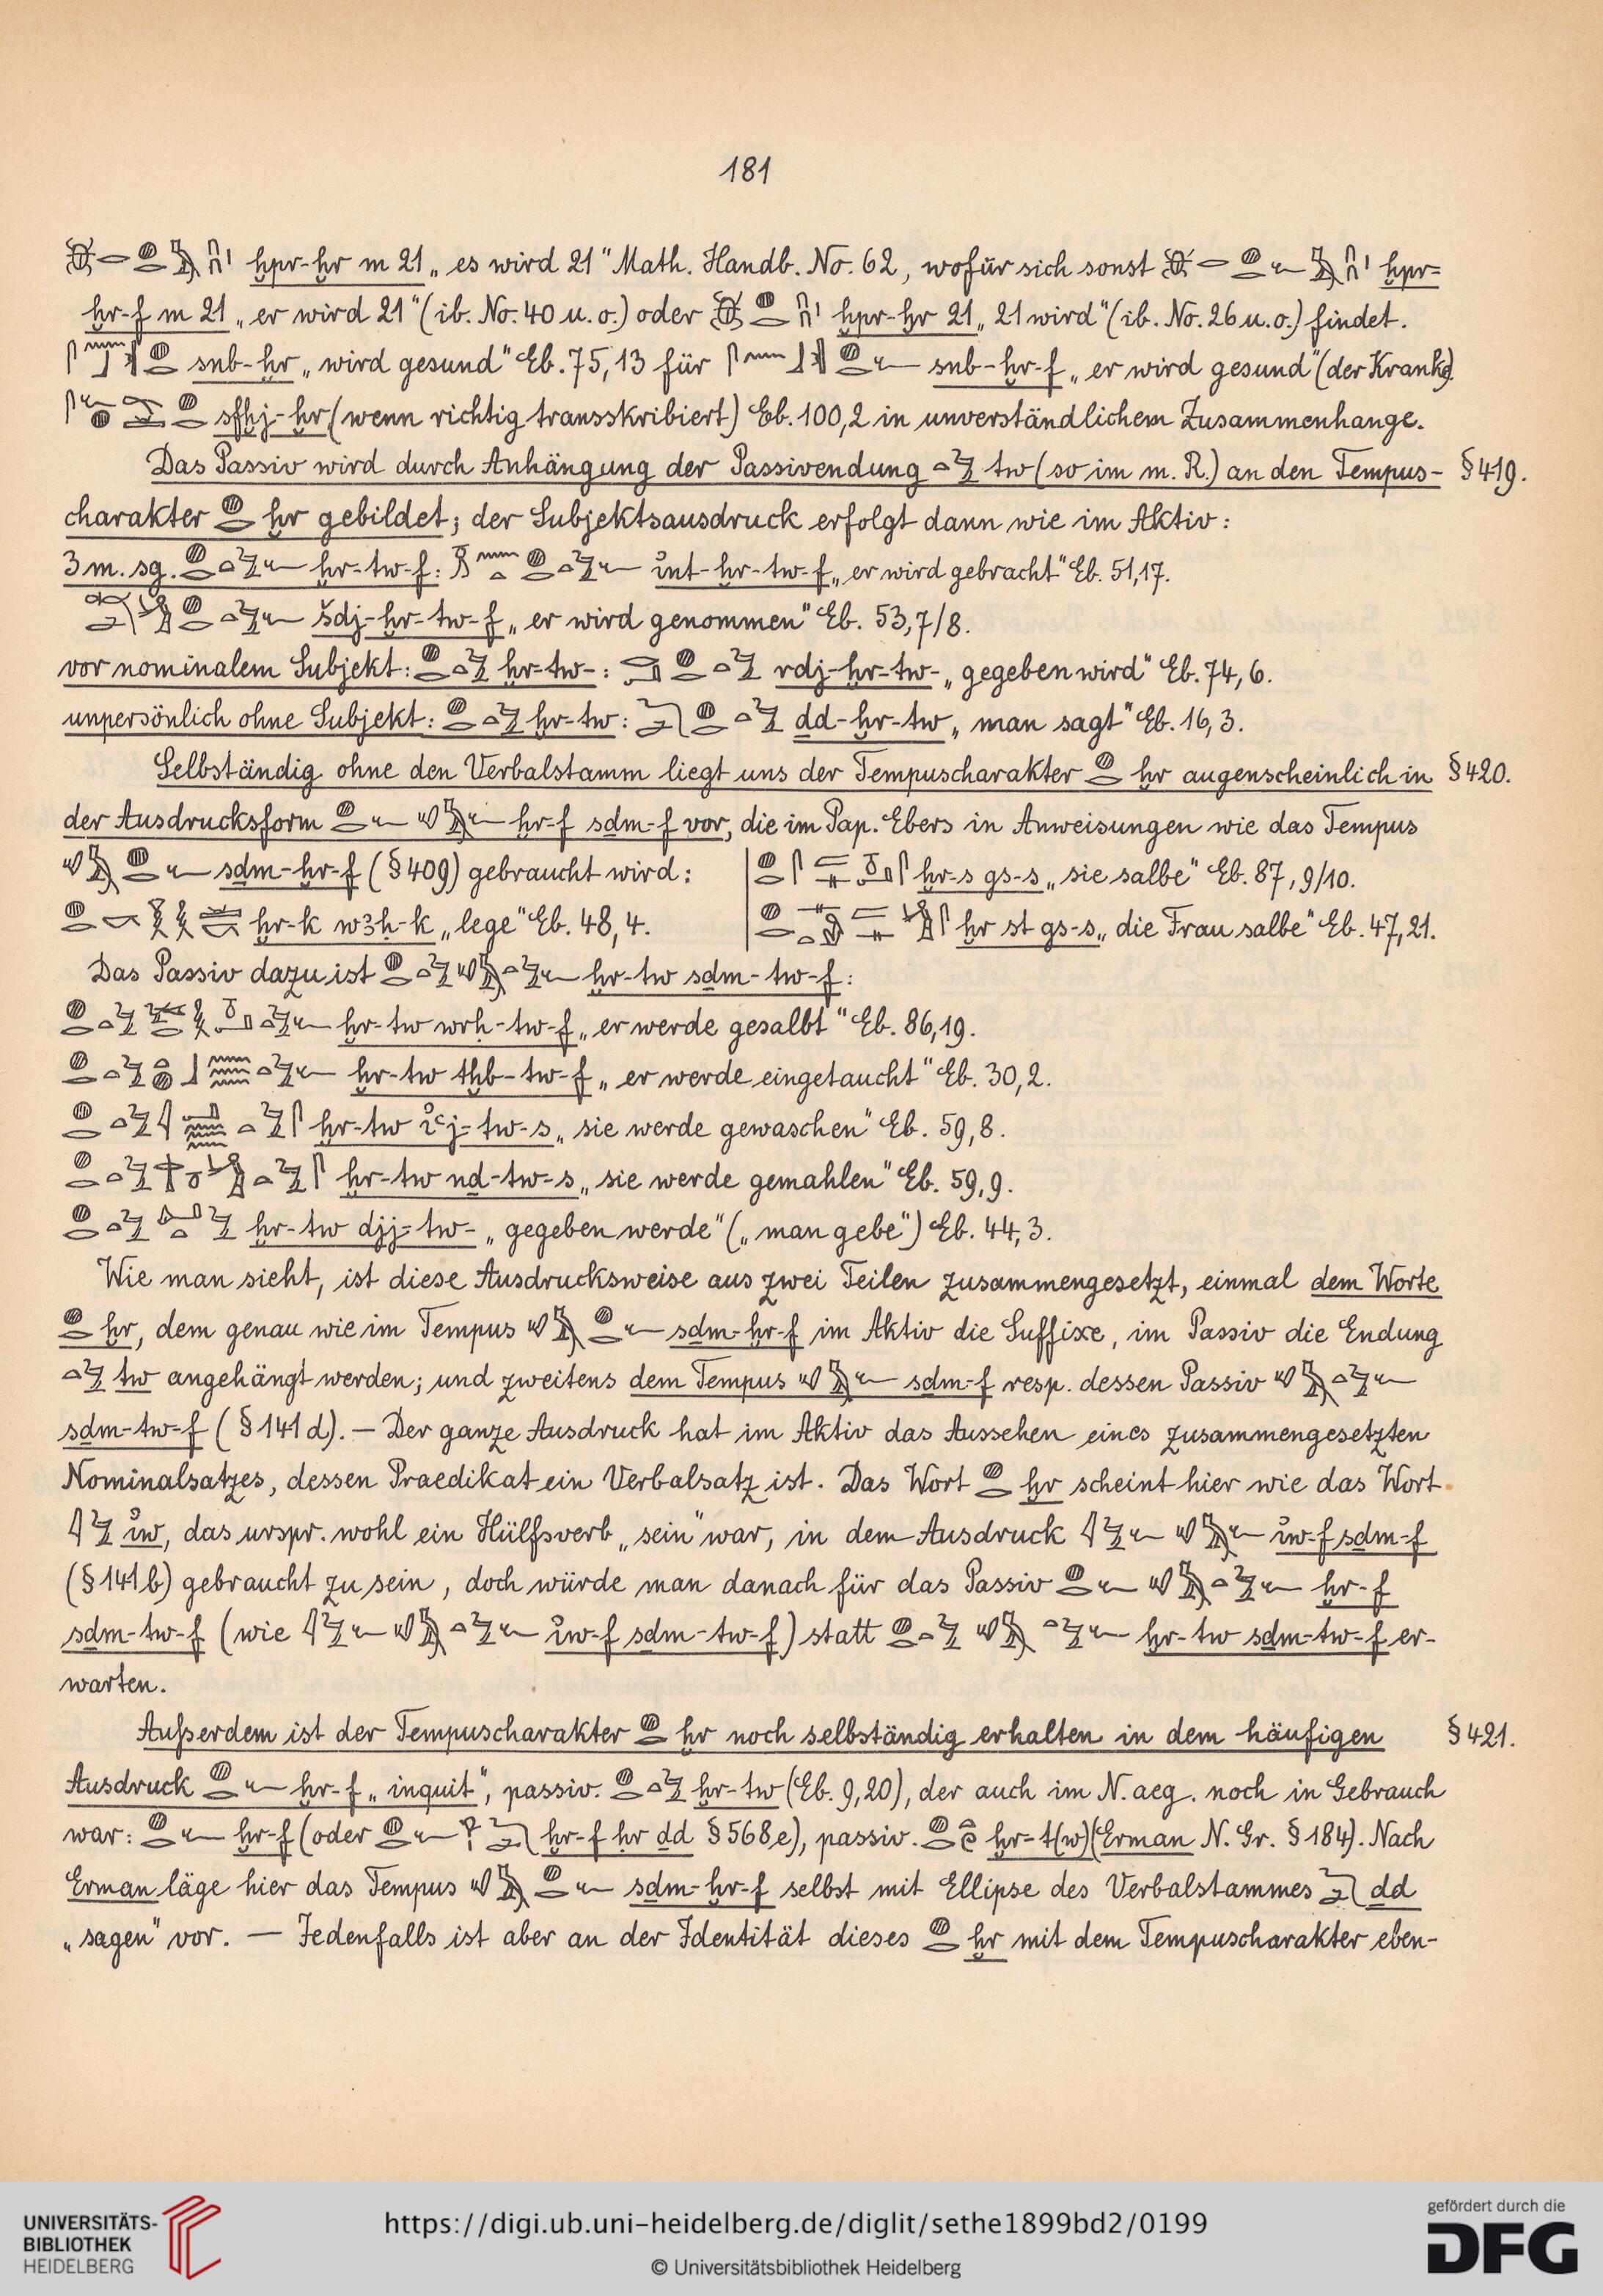 181
𓆣𓂋𓐍𓂋𓅓𓎆𓎆𓏤 ḫpr-ḫr m 21 „es wird 21“ Math. Handb. No. 62, wofür sich sonst 𓆣𓂋𓐍𓂋𓆑𓅓𓎆𓎆𓏤 ḫpr-
ḫr-f m 21 „er wird 21“ (ib. No. 40 u. o.) oder 𓆣𓐍𓂋𓎆𓎆𓏤 ḫpr-ḫr 21 „21 wird“ (ib. No. 26 u. o.) findet.
snb-ḫr „wird gesund“ Eb. 75,13 für snb-ḫr-f „er wird gesund“ (der Kranke).
sfḫj-ḫr (wenn richtig transskribiert) Eb. 100,2 in unverständlichem Zusammenhange.
Das Passiv wird durch Anhängung der Passivendung 𓏏𓅱 tw (so im m. R.) an den Tempus- §419.
charakter 𓐍𓂋 ḫr gebildet; der Subjektsausdruck erfolgt dann wie im Aktiv:
3 m. sg. 𓐍𓂋𓏏𓅱𓆑 ḫr-tw-f: 𓏎𓈖𓏏𓐍𓂋𓏏𓅱𓆑 i҆nt-ḫr-tw-f „er wird gebracht“ Eb. 51,17.
šdj-ḫr-tw-f „er wird genommen“ Eb. 53,7/8.
vor nominalem Subjekt: 𓐍𓂋𓏏𓅱 ḫr-tw-: 𓂋𓂞𓐍𓂋𓏏𓅱 rdj-ḫr-tw- „gegeben wird“ Eb. 74,6.
unpersönlich ohne Subjekt: 𓐍𓂋𓏏𓅱 ḫr-tw: 𓆓𓂧𓐍𓂋𓏏𓅱 ḏd-ḫr-tw „man sagt“ Eb. 16,3.
Selbständig ohne den Verbalstamm liegt uns der Tempuscharakter 𓐍𓂋 ḫr augenscheinlich in §420.
der Ausdrucksform 𓐍𓂋𓆑𓄔𓅓𓆑 ḫr-f sḏm-f vor, die im Pap. Ebers in Anweisungen wie das Tempus
𓄔𓅓𓐍𓂋𓆑 sḏm-ḫr-f (§409) gebraucht wird: 𓐍𓂋𓋴 ḫr-s gs-s „sie salbe“ Eb. 87,9/10.
𓐍𓂋𓎡 ḫr-k wꜣḥ-k „lege“ Eb. 48,4. 𓐍𓂋 ḫr st gs-s „die Frau salbe“ Eb. 47,21.
Das Passiv dazu ist 𓐍𓂋𓏏𓅱𓄔𓅓𓏏𓅱𓆑 ḫr-tw sḏm-tw-f:
𓐍𓂋𓏏𓅱 ḫr-tw wrḥ-tw-f „er werde gesalbt“ Eb. 86,19.
𓐍𓂋𓏏𓅱 ḫr-tw tḫb-tw-f „er werde eingetaucht“ Eb. 30,2.
𓐍𓂋𓏏𓅱 ḫr-tw i҆ꜥj-tw-s „sie werde gewaschen“ Eb. 59,8.
𓐍𓂋𓏏𓅱 ḫr-tw nḏ-tw-s „sie werde gemahlen“ Eb. 59,9.
𓐍𓂋𓏏𓅱 ḫr-tw djj-tw- „gegeben werde“ („man gebe“) Eb. 44,3.
Wie man sieht, ist diese Ausdrucksweise aus zwei Teilen zusammengesetzt, einmal dem Worte
𓐍𓂋 ḫr, dem genau wie im Tempus 𓄔𓅓𓐍𓂋𓆑 sḏm-ḫr-f im Aktiv die Suffixe, im Passiv die Endung
𓏏𓅱 tw angehängt werden; und zweitens dem Tempus 𓄔𓅓𓆑 sḏm-f resp. dessen Passiv 𓄔𓅓𓏏𓅱𓆑
sḏm-tw-f (§141d). — Der ganze Ausdruck hat im Aktiv das Aussehen eines zusammengesetzten
Nominalsatzes, dessen Praedikat ein Verbalsatz ist. Das Wort 𓐍𓂋 ḫr scheint hier wie das Wort
𓇋𓅱 i҆w, das urspr. wohl ein Hülfsverb „sein“ war, in dem Ausdruck 𓇋𓅱𓆑𓄔𓅓𓆑 i҆w-f sḏm-f
(§141b) gebraucht zu sein, doch würde man danach für das Passiv 𓐍𓂋𓆑𓄔𓅓𓏏𓅱𓆑 ḫr-f
sḏm-tw-f (wie 𓇋𓅱𓆑𓄔𓅓𓏏𓅱𓆑 i҆w-f sḏm-tw-f) statt 𓐍𓂋𓏏𓅱𓄔𓅓𓏏𓅱𓆑 ḫr-tw sḏm-tw-f er-
warten.
Außerdem ist der Tempuscharakter 𓐍𓂋 ḫr noch selbständig erhalten in dem häufigen §421.
Ausdruck 𓐍𓂋𓆑 ḫr-f „inquit“, passiv. 𓐍𓂋𓏏𓅱 ḫr-tw (Eb. 9,20), der auch im N. aeg. noch in Gebrauch
war: 𓐍𓂋𓆑 ḫr-f (oder 𓐍𓂋𓆑𓁷𓆓𓂧 ḫr-f ḥr ḏd §568e), passiv. 𓐍𓂋𓏏𓏲 ḫr-t(w) (Erman N. Gr. §184). Nach
Erman läge hier das Tempus 𓄔𓅓𓐍𓂋𓆑 sḏm-ḫr-f selbst mit Ellipse des Verbalstammes 𓆓𓂧 ḏd
„sagen“ vor. — Jedenfalls ist aber an der Identität dieses 𓐍𓂋 ḫr mit dem Tempuscharakter eben-
UNIVERSITÄTS-
BIBLIOTHEK
HEIDELBERG
https://digi.ub.uni-heidelberg.de/diglit/sethe1899bd2/0199
© Universitätsbibliothek Heidelberg
gefördert durch die
DFG